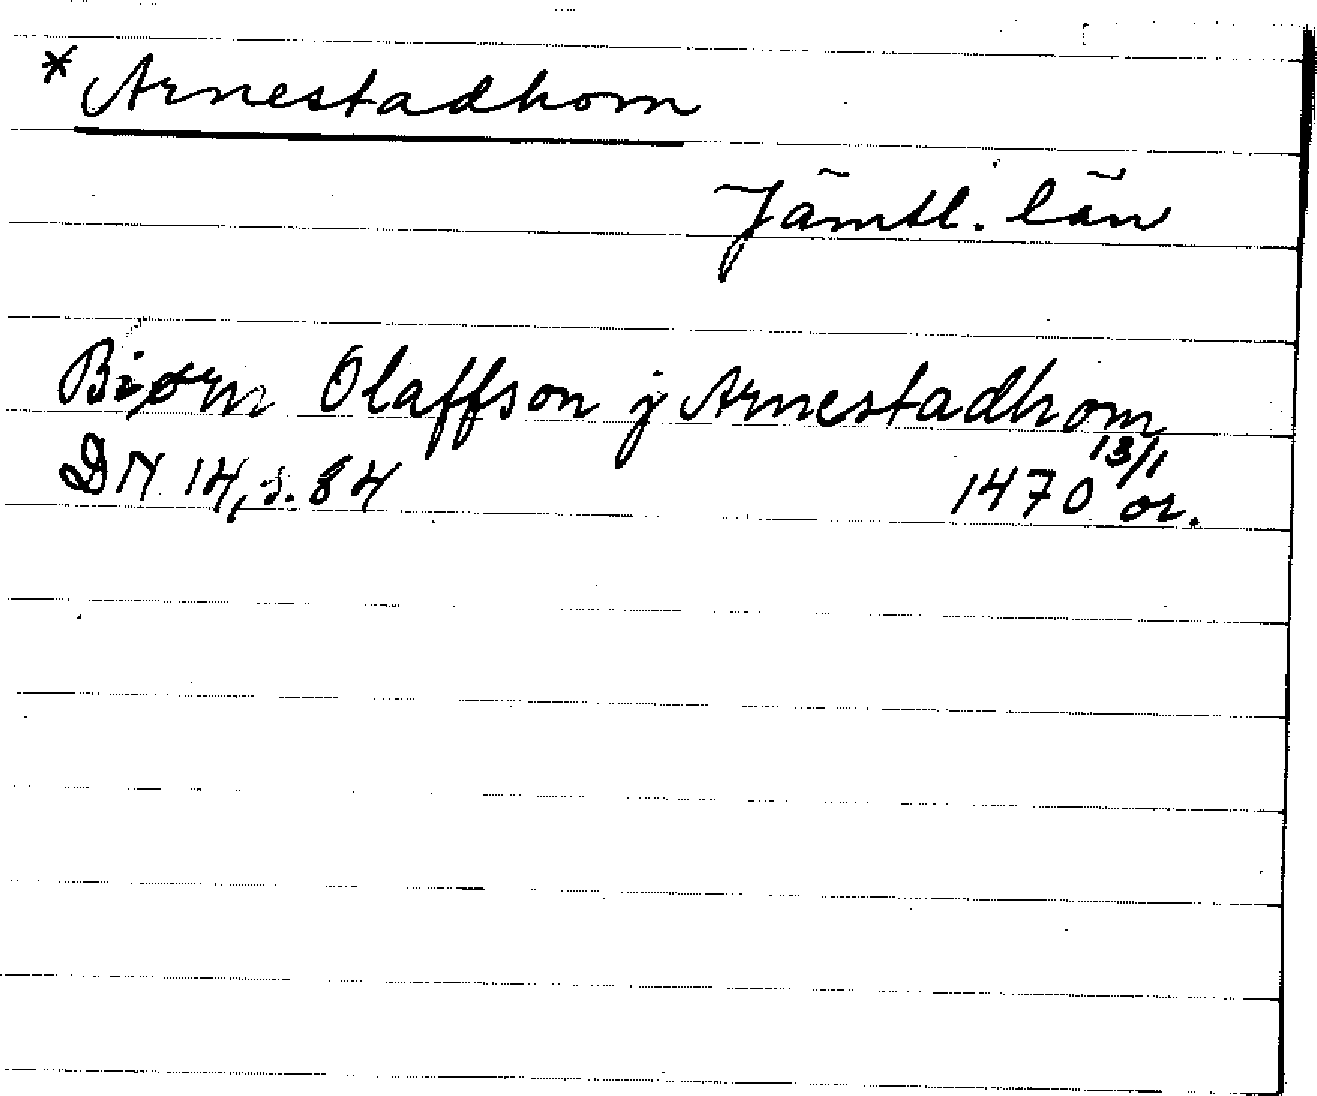 * Arnestadhom
Jämtl. län
Biørn Olaffson j Arnestadhom
DN 14, s. 84 1470 13/1 or.